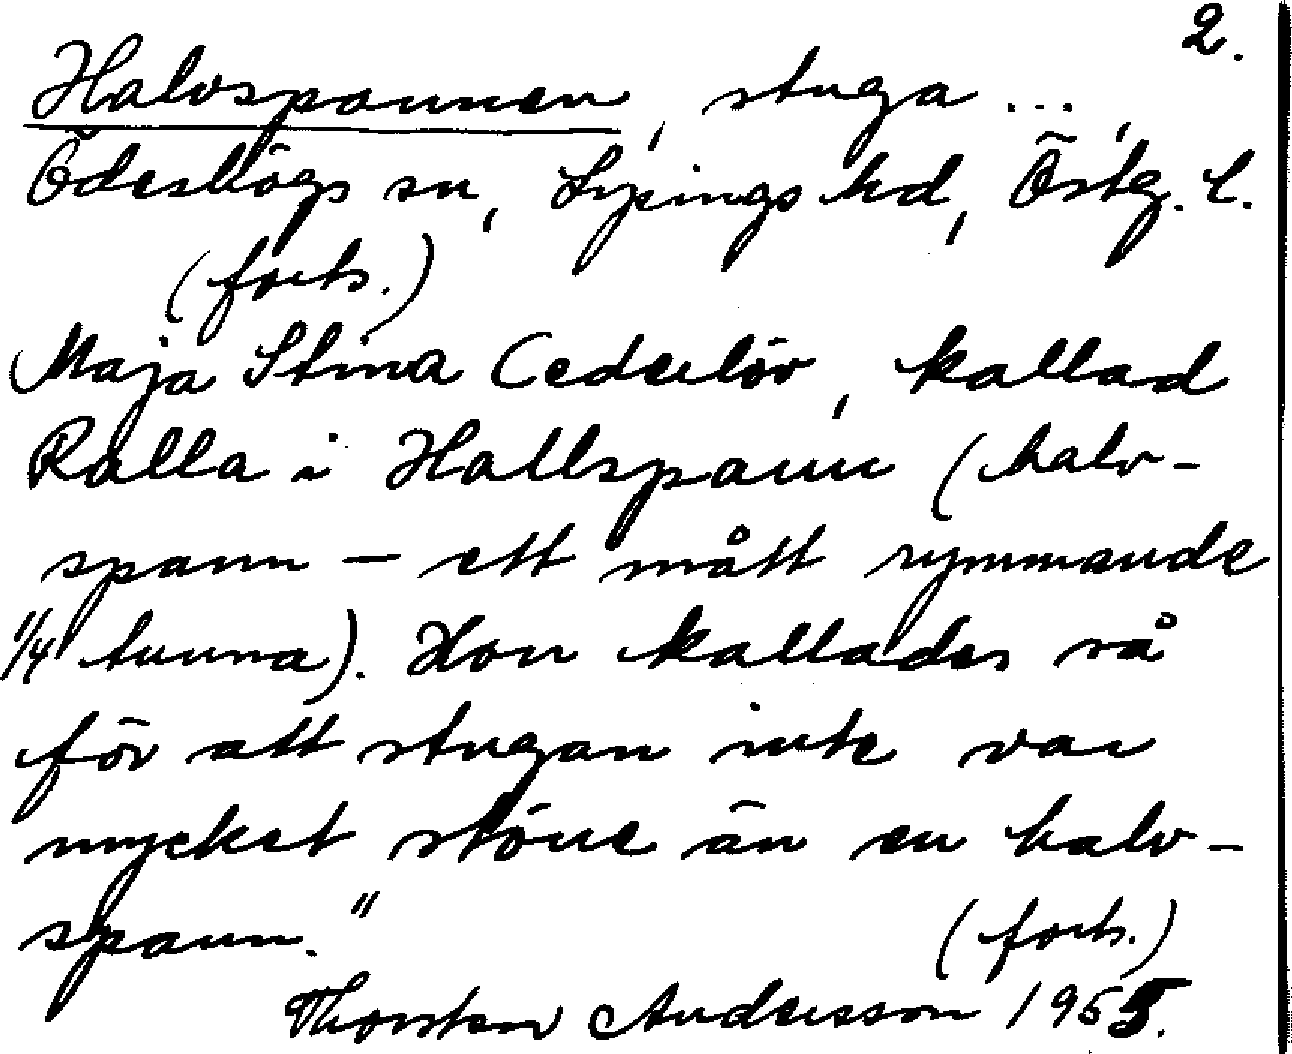 2.
Halvspannen, stuga ...,
Ödeshögs sn, Lysings hd, Östg. l.
(forts.)
Maja Stina Cederlöv, kallad
Ralla i Hallspann (halv-
spann – ett mått rymmande
1/4 tunna). Hon kallades så
för att stugan inte var
mycket större än en halv-
spann."
(forts.)
Thorsten Andersson 1955.